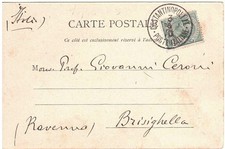 (Italia)
CARTE POSTALE
Ce côté est exclusivement réservé à l'adresse
COSTANTINOPOLI
Mons. Prof. Giovanni Ceroni
Brisighella
(Ravenna)